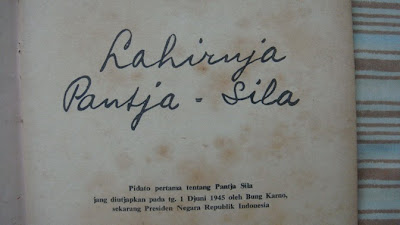 Lahirnja
Pantja - Sila
Pidato pertama tentang Pantja Sila
jang diutjapkan pada tg. 1 Djuni 1945 oleh Bung Karno,
sekarang Presiden Negara Republik Indonesia